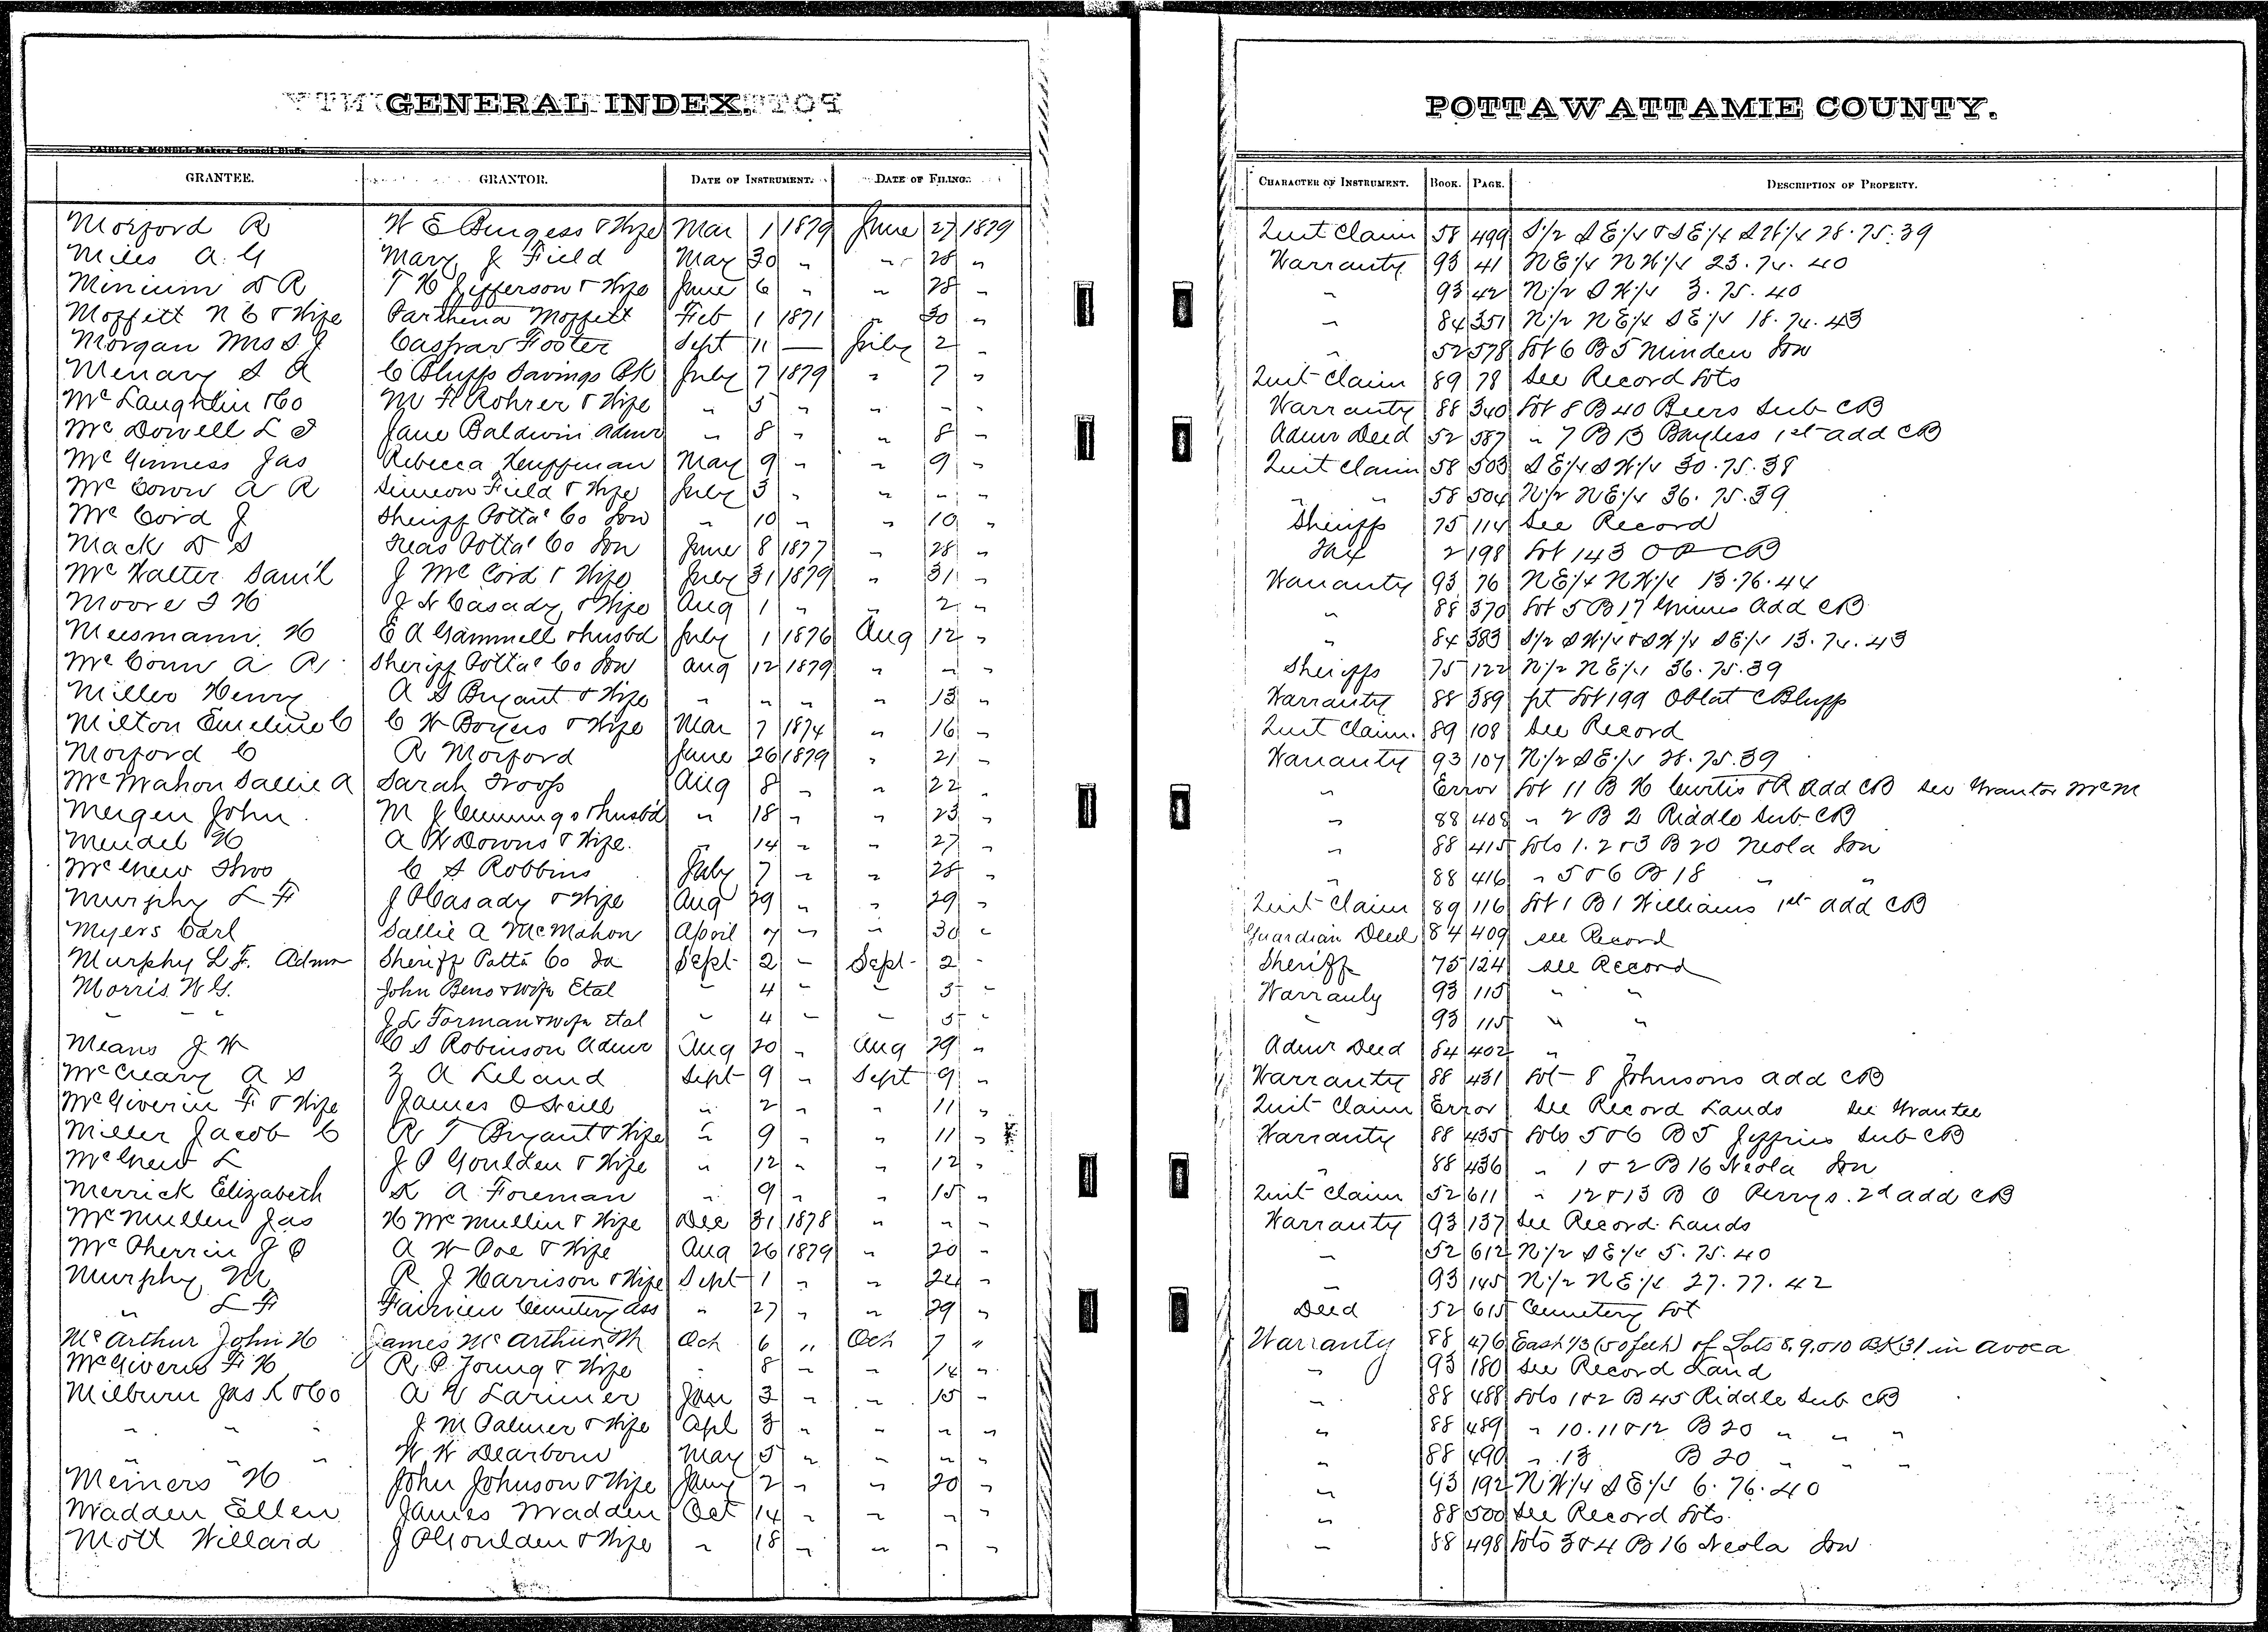 GENERAL INDEX.
POTTAWATTAMIE COUNTY.
FAIRLIE & MONELL, Makers, Council Bluffs.
GRANTEE. GRANTOR. DATE OF INSTRUMENT. DATE OF FILING. CHARACTER OF INSTRUMENT. BOOK. PAGE. DESCRIPTION OF PROPERTY.
Morford R W E Burgess & Wife Mar 1 1879 June 27 1879 Quit Claim 58 499 S½ SE¼ & SE¼ SW¼ 28.75.39
Miles A. G Mary J Field May 30 " " 28 " Warranty 93 41 NE¼ NW¼ 23.74.40
Minium D R T H Jefferson & Wife June 6 " " 28 " " 93 42 N½ SW¼ 3.75.40
Moffitt N C & Wife Parthena Moffett Feb 1 1871 " 30 " " 84 351 N½ NE¼ SE¼ 18.74.43
Morgan Mrs S J Caspar Foster Sept 11 — July 2 " " 52 578 Lot 6 B 5 Minden Iow
Menary S A C Bluffs Savings Bk July 7 1879 " 7 " Quit Claim 89 78 See Record Lots
McLaughlin & Co M F Rohrer & Wife " 5 " " " " Warranty 88 340 Lot 8 B 40 Beers Sub CB
McDowell L J Jane Baldwin Admr " 8 " " 8 " Admr Deed 52 587 " 7 B 13 Bayless 1st add CB
McGinness Jas Rebecca Huffman May 9 " " 9 " Quit Claim 58 503 SE¼ SW¼ 30.75.38
McCown A R Simeon Field & Wife July 3 " " " " " " 58 504 N½ NE¼ 36.75.39
McCord J Sheriff Potta' Co Iow " 10 " " 10 " Sheriffs 75 114 See Record
Mack D S Treas Potta' Co Iow June 8 1877 " 28 " Tax 2 198 Lot 143 O P CB
McWalter Sam'l J McCord & Wife July 31 1879 " 31 " Warranty 93 76 NE¼ NW¼ 13.76.44
Moore I H J N Casady & Wife Aug 1 " " 2 " " 88 370 Lot 5 B 17 Grimes Add CB
Meesmann H E A Gammell & husbd July 1 1876 Aug 12 " " 84 383 S½ SW¼ & SW¼ SE¼ 13.74.43
McConn A R Sheriff Potta' Co Iow Aug 12 1879 " " " Sheriffs 75 122 N½ NE¼ 36.75.39
Miller Henry A S Bryant & Wife " " " " 13 " Warranty 88 389 pt Lot 199 O Plat C Bluffs
Milton Emeline C C W Boyers & Wife Mar 7 1874 " 16 " Quit Claim. 89 108 See Record
Morford C R Morford June 26 1879 " 21 " Warranty 93 107 N½ SE¼ 28.75.39
McMahon Sallie A Sarah Troop Aug 8 " " 22 " " Error Lot 11 B H Curtis & R Add CB See Grantor McM
Mergen John M J Cummings & husbd " 18 " " 23 " " 88 408 " 2 B 2 Riddle Sub CB
Mendel H A W Downs & Wife. " 14 " " 27 " " 88 415 Lots 1.2 & 3 B 20 Neola Iow
McGrew Thos C S Robbins July 7 " " 28 " " 88 416 " 5 & 6 B 18 " "
Murphy L F J P Casady & Wife Aug 29 " " 29 " Quit Claim 89 116 Lot 1 B 1 Williams 1st add CB
Myers Carl Sallie A McMahon April 7 " " 30 " Guardian Deed 84 409 see Record
Murphy L F. Admr Sheriff Potta Co Ia Sept 2 " Sept 2 " Sheriff 75 124 see Record
Morris W G. John Beno & wife Etal " 4 " " 5 " Warranty 93 115 " "
" " " J L Forman & wife Etal " 4 " " 5 " " 93 115 " "
Means J W C S Robinson Admr Aug 20 " Aug 29 " Admr Deed 84 402 " "
McCreary A S Z A Leland Sept 9 " Sept 9 " Warranty 88 431 Lot 8 Johnsons add CB
McGiverin F & Wife James O'Neill " 2 " " 11 " Quit Claim Error See Record Lands See Grantee
Miller Jacob C R T Bryant & Wife " 9 " " 11 " Warranty 88 435 Lots 5 & 6 B 5 Jeffries Sub CB
McGrew L J P Goulden & Wife " 12 " " 12 " " 88 436 " 1 & 2 B 16 Neola Iow
Merrick Elizabeth K A Foreman " 9 " " 15 " Quit Claim 52 611 " 12 & 13 B O Perrys 2d add CB
McMullen Jas H McMullin & Wife Dec 31 1878 " " " Warranty 93 137 See Record Lands
McPherrin J P A W Poe & Wife Aug 26 1879 " 20 " " 52 612 N½ SE¼ 5.75.40
Murphy M R J Harrison & Wife Sept 1 " " 24 " " 93 145 N½ NE¼ 27.77.42
" L F Fairview Cemetery Ass " 27 " " 29 " Deed 52 615 Cemetery Lot
McArthur John H James McArthur Oct 6 " Oct 7 " Warranty 88 476 East ⅓ (50 feet) of Lots 8, 9, & 10 BK 31 in Avoca
McGivern F H R P Young & Wife " 8 " " 14 " " 93 180 See Record Land
Milburn Jas K & Co A V Larimer Jan 3 " " 15 " " 88 488 Lots 1 & 2 B 45 Riddle Sub CB
" " " J M Palmer & Wife Apl 3 " " " " " 88 489 " 10.11 & 12 B 20 " " "
" " " W W Dearborn May 5 " " " " " 88 490 " 13 B 20 " " "
Meiners H John Johnson & Wife Jany 2 " " 20 " " 93 192 NW¼ SE¼ 6.76.40
Madden Ellen James Madden Oct 14 " " " " " 88 500 See Record Lots
Mott Willard J P Goulden & Wife " 18 " " " " " 88 498 Lots 3 & 4 B 16 Neola Iow